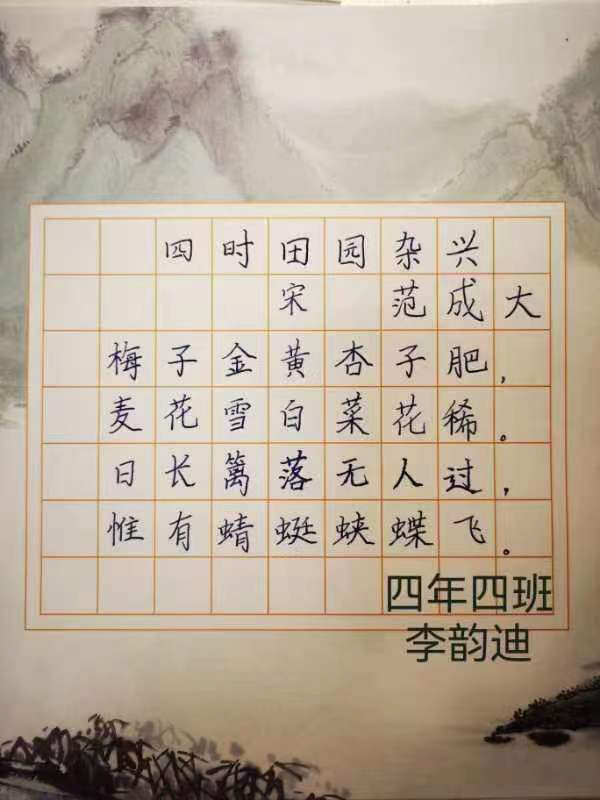 四时田园杂兴
宋 范成大
梅子金黄杏子肥，
麦花雪白菜花稀。
日长篱落无人过，
惟有蜻蜓蛱蝶飞。
四年四班
李韵迪